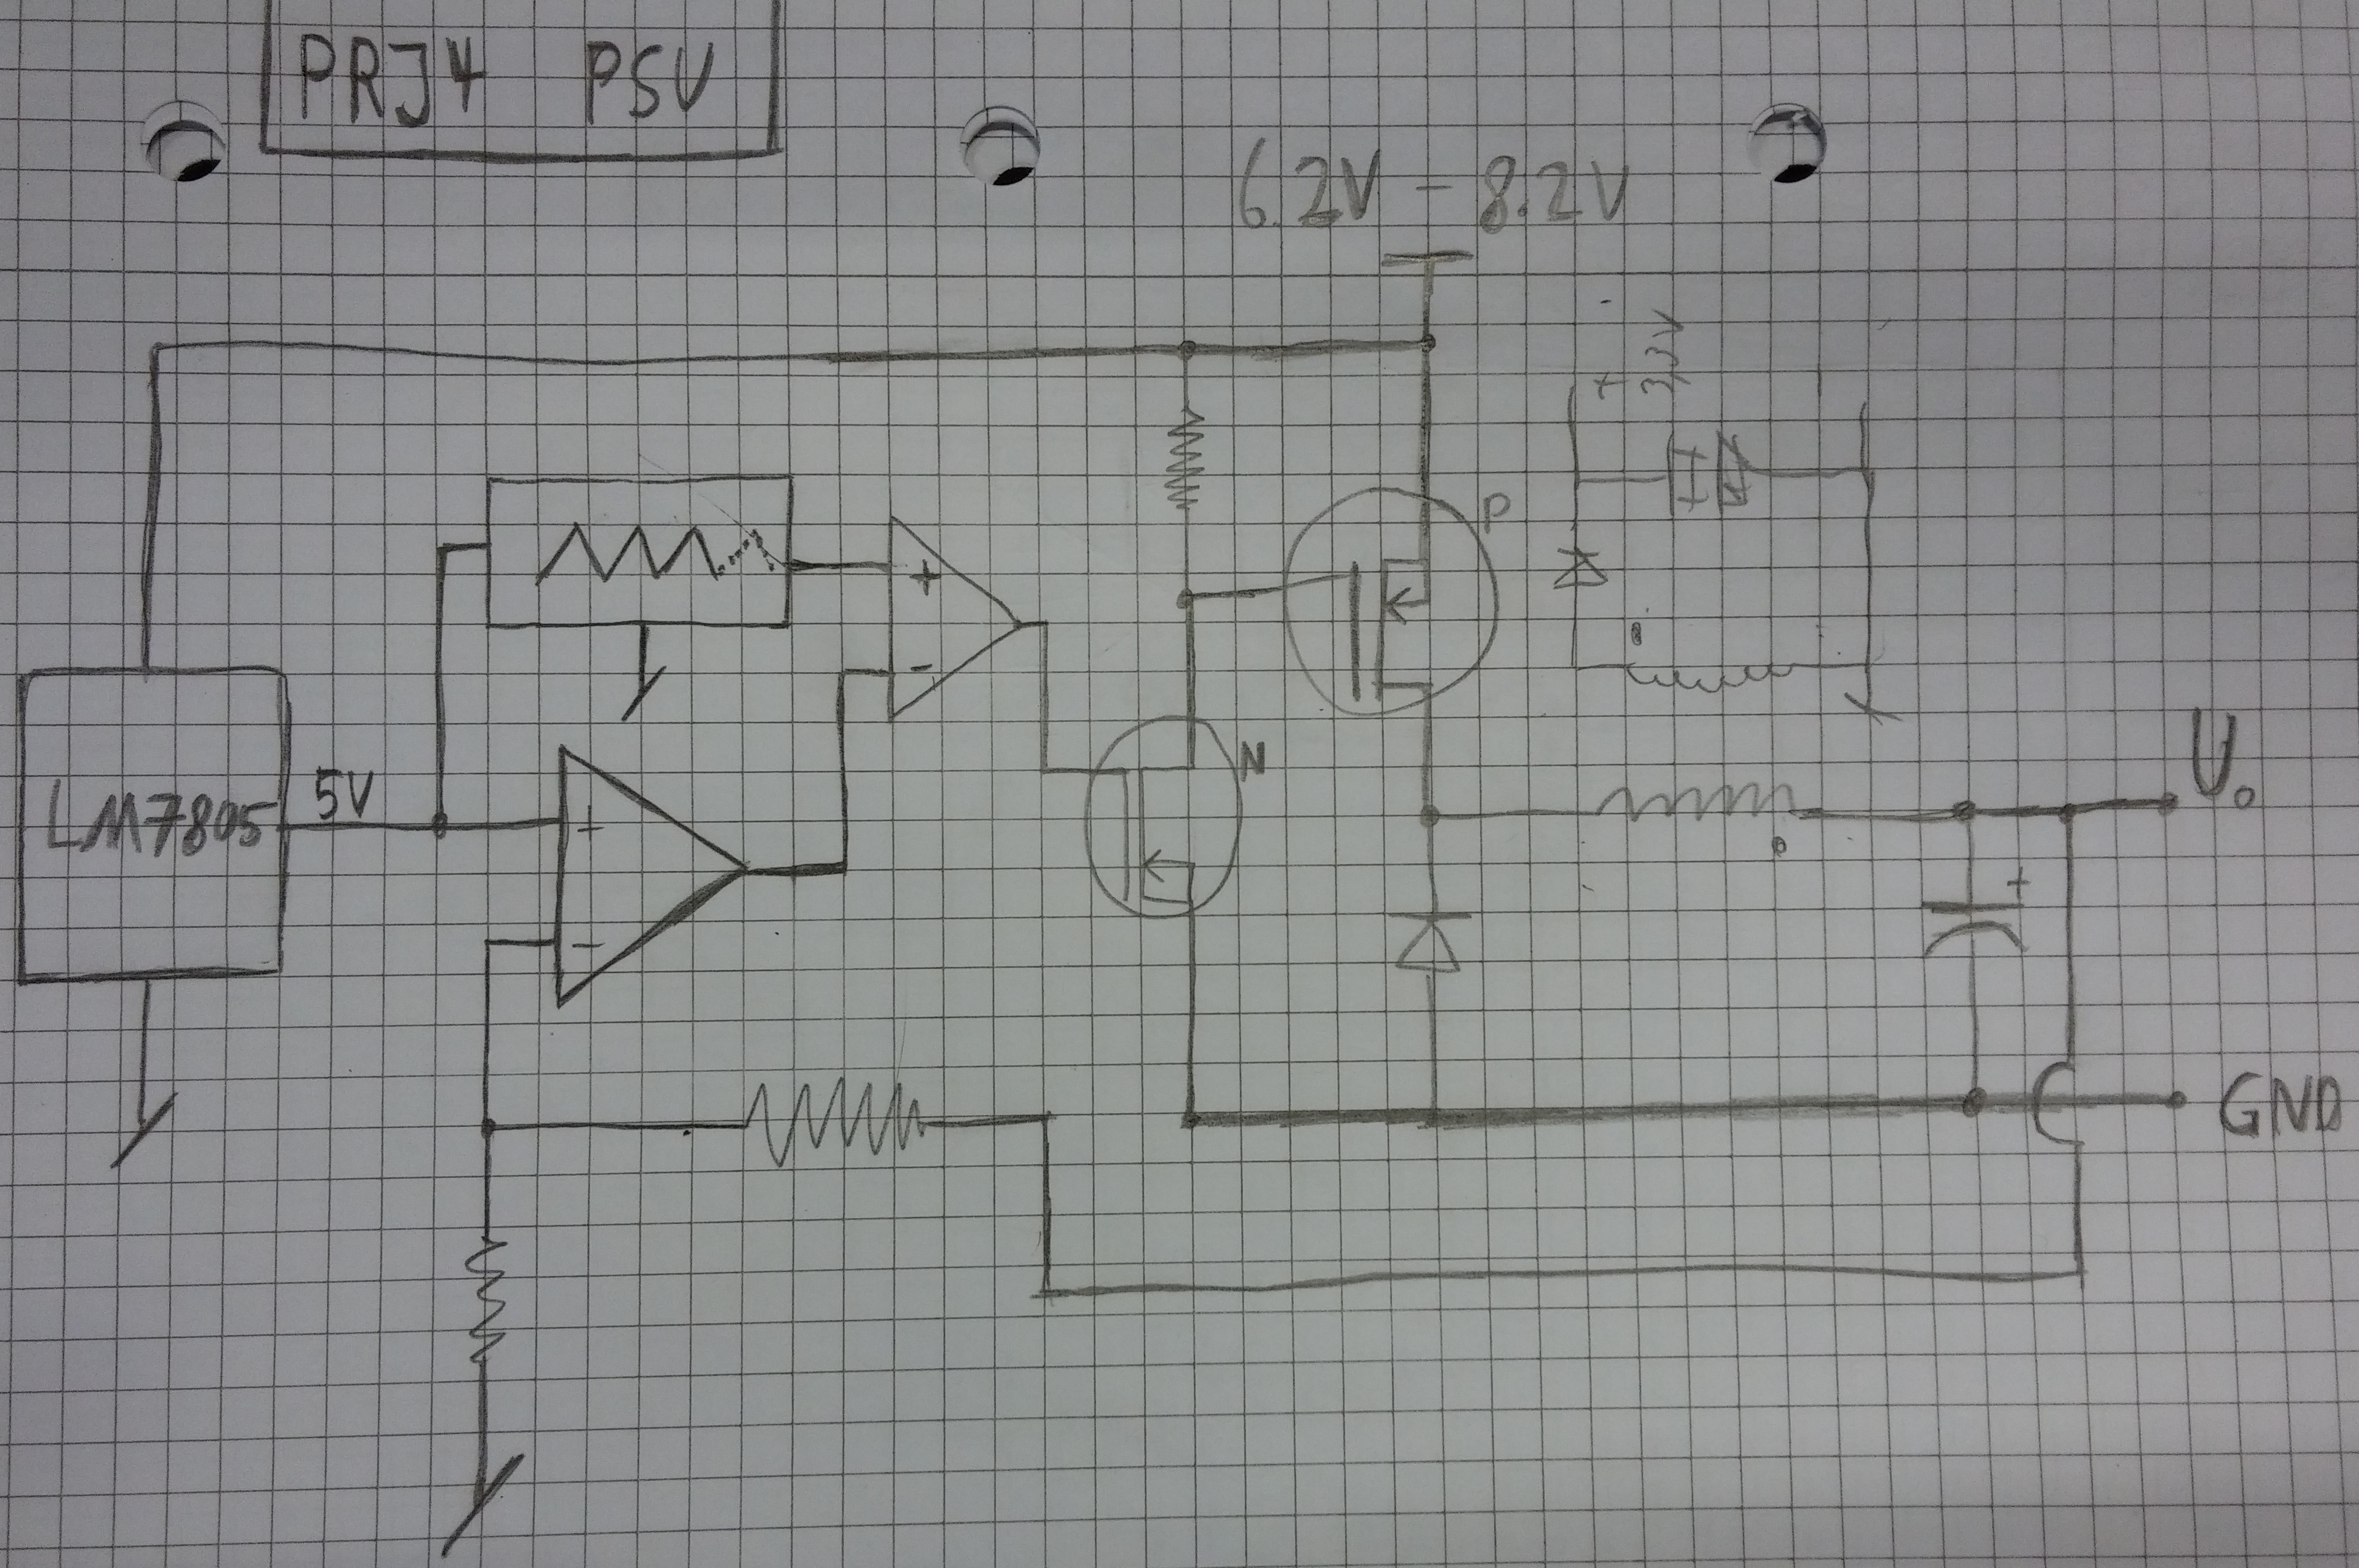 PRJ4 PSU
6.2V - 8.2V
+ 3,3V
P
+
-
N
LM7805
5V
+
-
U₀
+
GND